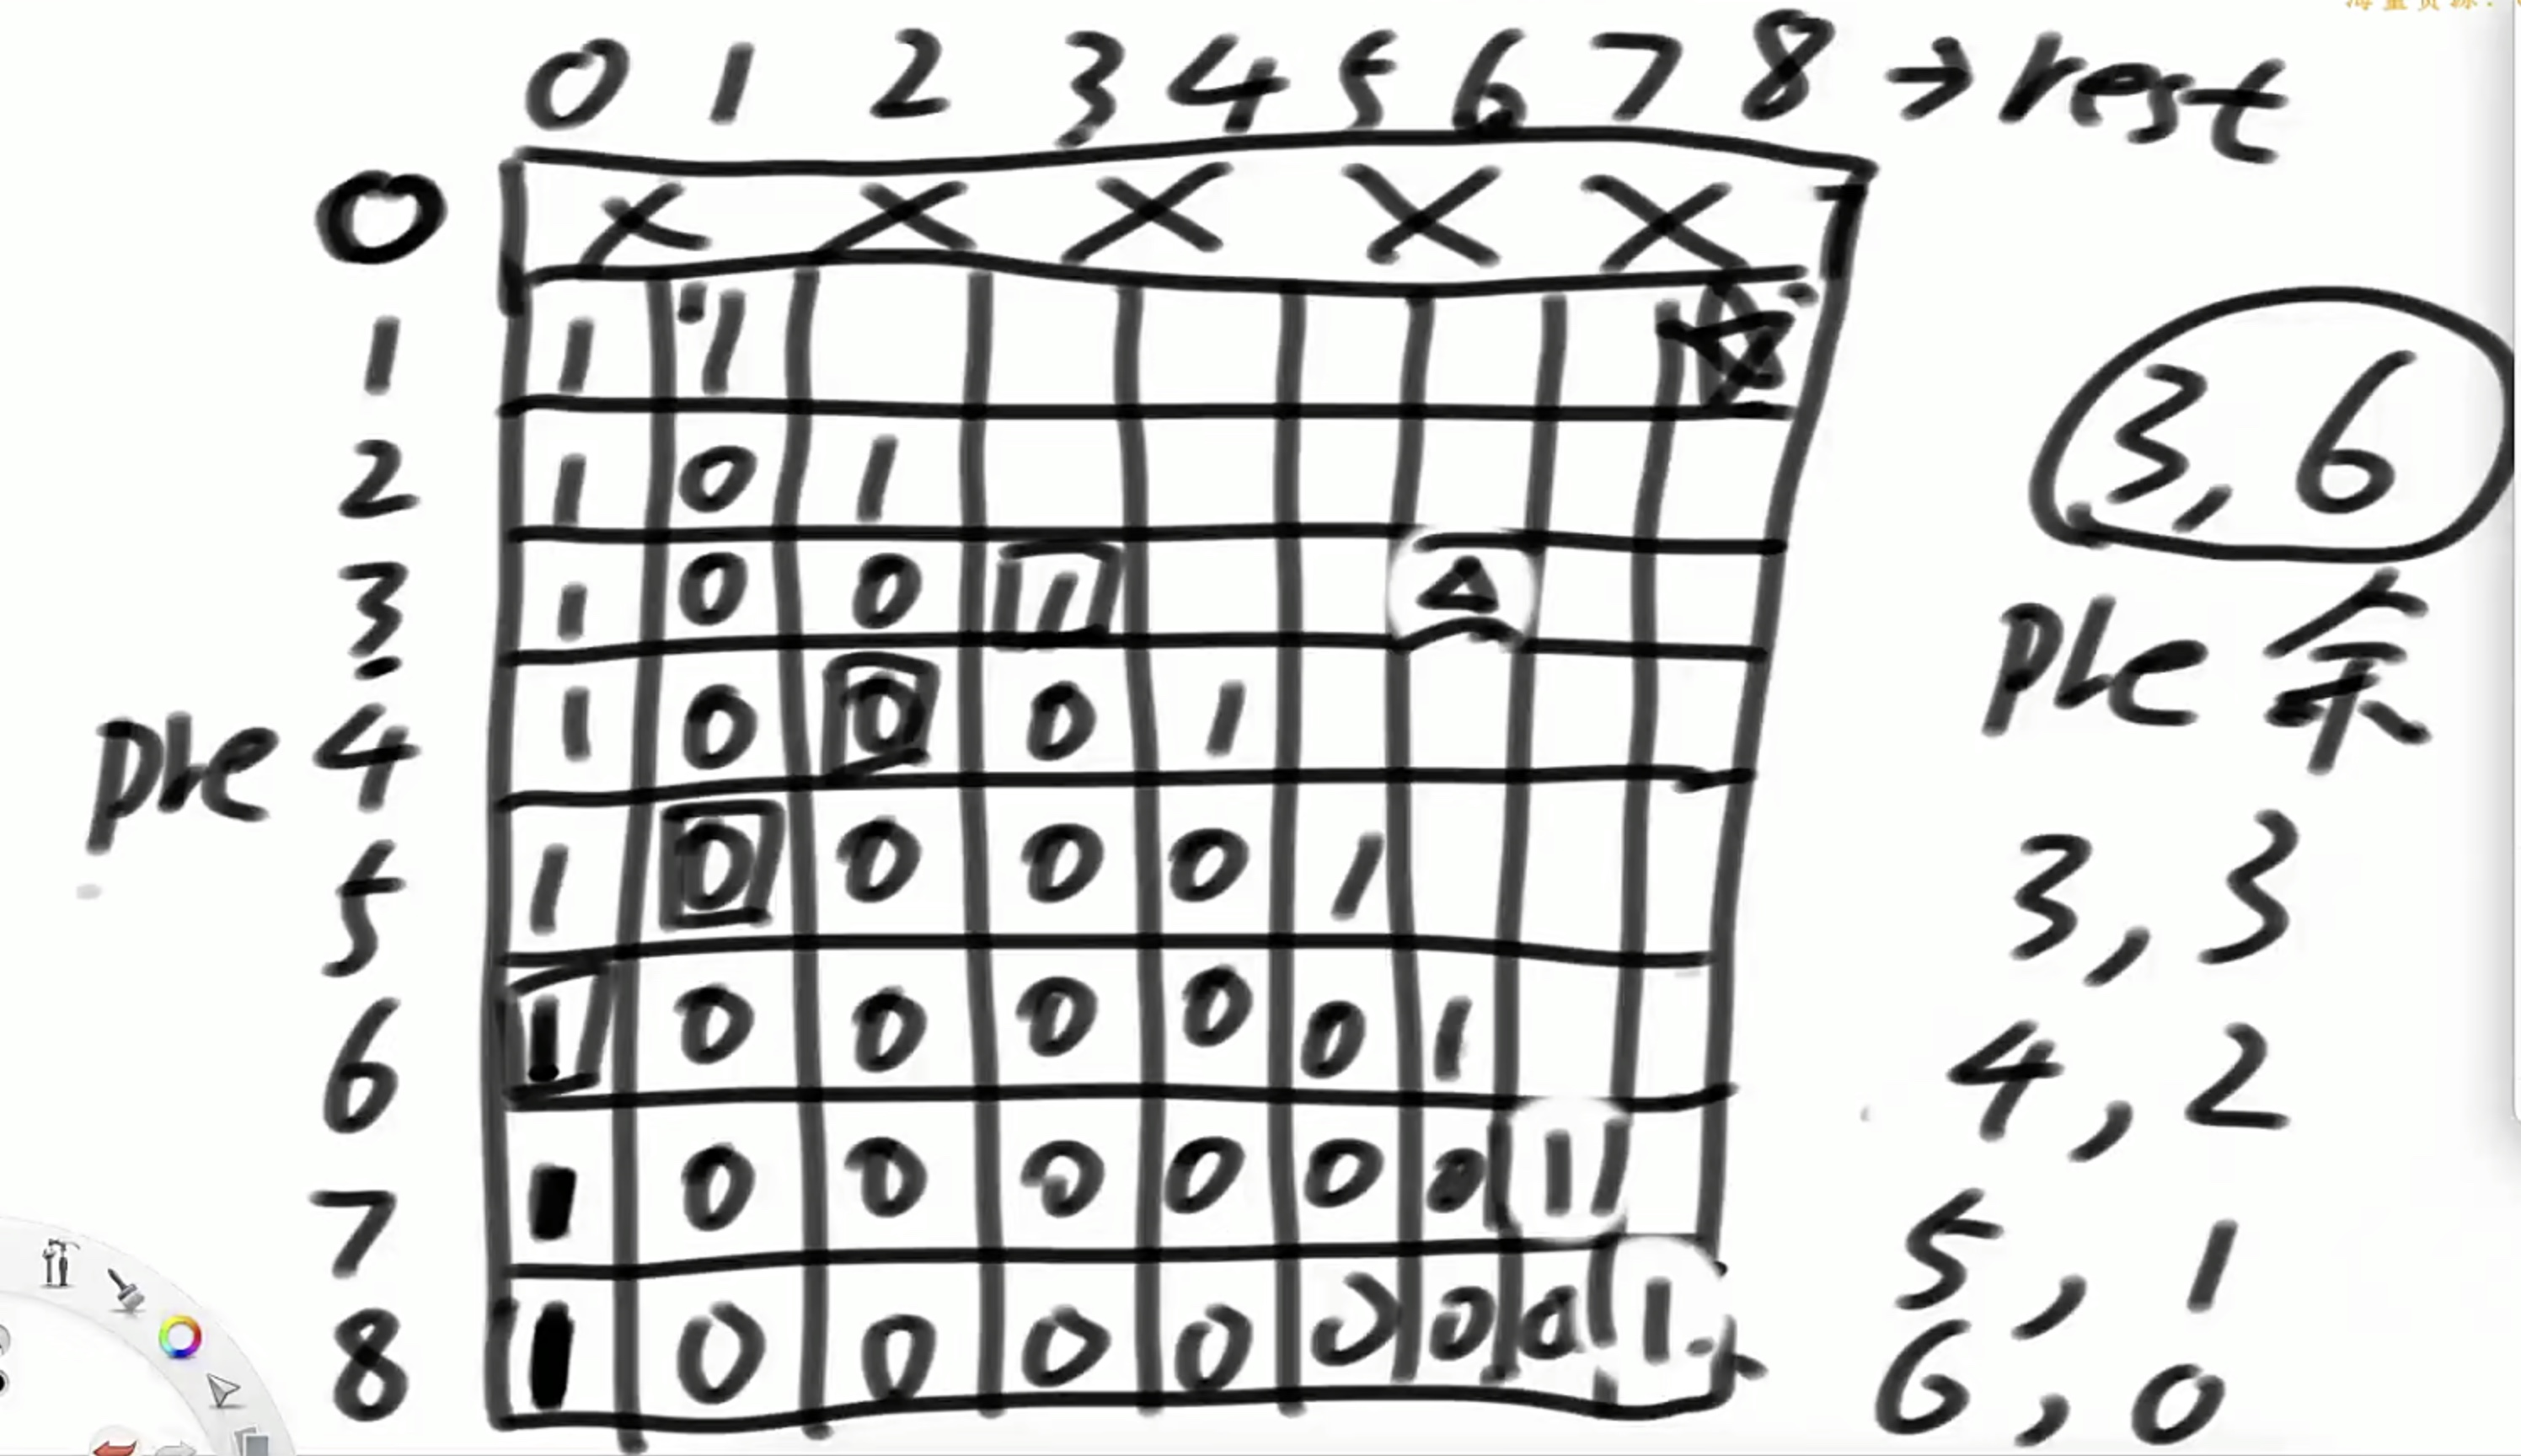 海量资源:
0 1 2 3 4 5 6 7 8 → rest
0 × × × × ×
1 1 1
2 1 0 1
3 1 0 0 1 △
4 1 0 0 0 1
5 1 0 0 0 0 1
6 1 0 0 0 0 0 1
7 1 0 0 0 0 0 0 1
8 1 0 0 0 0 0 0 0 1
pre
3, 6
pre 余
3, 3
4, 2
5, 1
6, 0